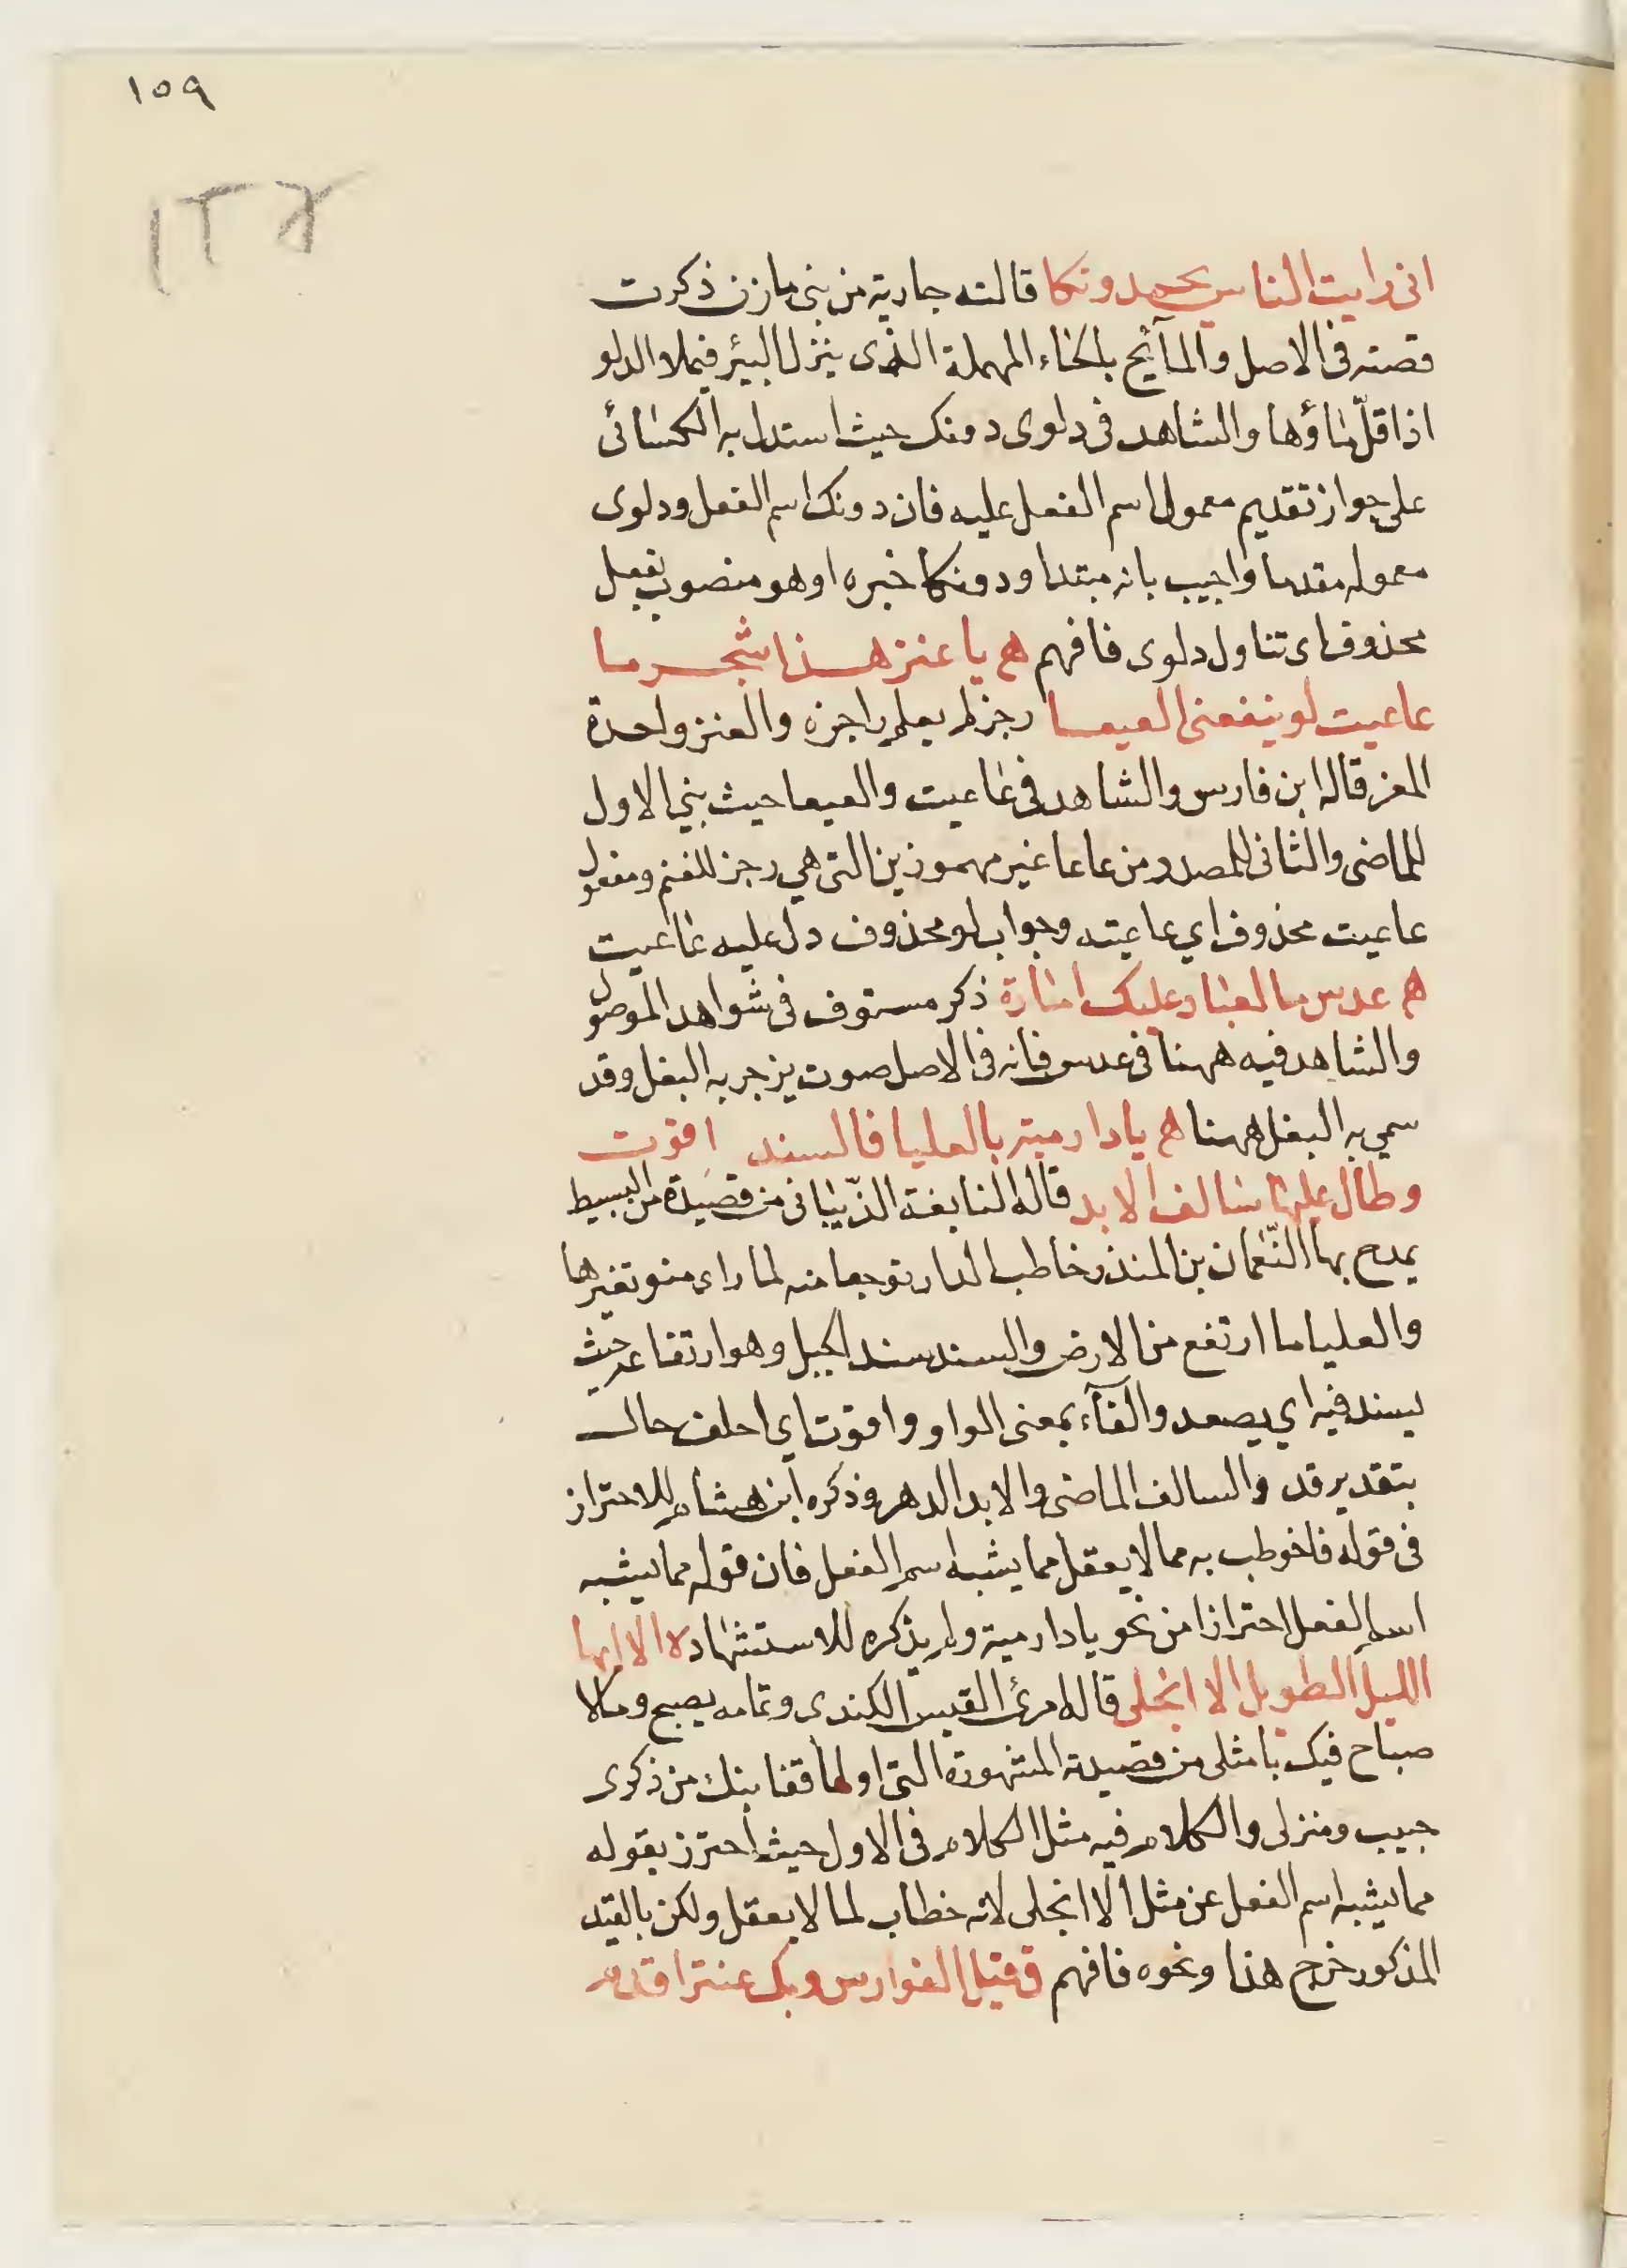 ١٥٩
انى رايت الناس يحمدونكا قالته جارية من بنى مازن ذكرت
قصته فى الاصل والمآئح بالحاء المهملة الذى ينزل البيئر فيملا الدلو
اذا قلّ ماؤها والشاهد فى دلوى دونك حيث استدل به الكسائى
على جواز تقديم معمول اسم الفعل عليه فان دونك اسم الفعل ودلوى
معموله مقدما واجيب بانه مبتدا ودونكا خبره او هو منصوب بفعل
محذوف اى تناول دلوى فافهم هـ يا عنز هذا شجر وما
عاعيت لو ينفعنى العيعا رجز لم يعلم راجزه والعنز واحدة
المعز قاله ابن فارس والشاهد فى عاعيت والعيعا حيث بنى الاول
للماضى والثانى للمصدر من عاعا غير مهموزين التى هي زجر للغنم ومفعول
عاعيت محذوف اي عاعيته وجواب لو محذوف دل عليه عاعيت
هـ عدس ما لعباد عليك امارة ذكر مستوف فى شواهد الموصول
والشاهد فيه ههنا فى عدس فانه فى الاصل صوت يزجر به البغل وقد
سمي به البغل ههنا هـ يا دار مية بالعليا فالسند اقوت
وطال عليها سالف الابد قاله النابغة الذّبيانى من قصيدة من البسيط
يمدح بها النّعمان بن المنذر خاطب الدار توجعا منه لما راى منو تغيرها
والعليا ما ارتفع من الارض والسند سند الجبل وهو ارتفاعه حيث
يسند فيه اي يصعد والفآء بمعنى الواو واقوت اي احلف حال
بتقدير قد والسالف الماضى والابد الدهر وذكره ابن هشام للاحتراز
فى قوله فاخوطب به مما لا يعقل مما يشبه اسم الفعل فان قوله مما يشبه
اسم الفعل احترازا من نحو يا دار مية ولم يذكره للاستشهاد هـ الا ايها
الليل الطويل الا انجلى قاله امرئ القيس الكندى وتمامه يصبح وما لا
صباح فيك بامثلى من قصيدته المشهورة التى اولها قفا نبك من ذكرى
حبيب ومنزلى والكلام فيه مثل الكلام فى الاول حيث احترز بقوله
مما يشبه اسم الفعل عن مثل الا انجلى لانه خطاب لما لا يعقل ولكن بالقيد
المذكور خرج هذا ونحوه فافهم ق قيل الفوارس ويك عنتر اقدم